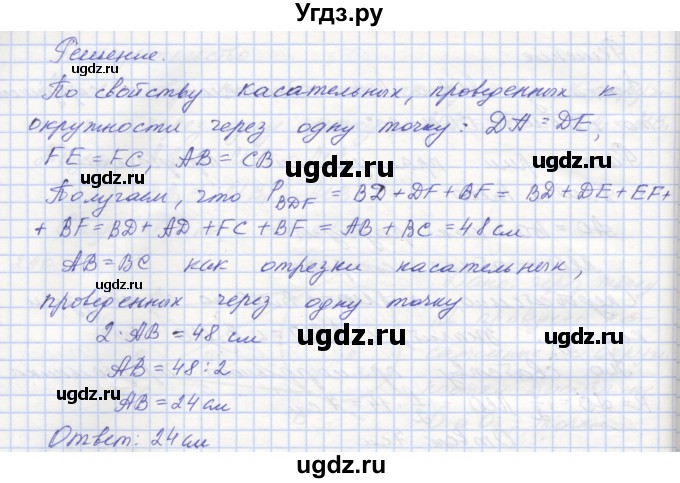 Угдз.ру
Решение.
По свойству касательных, проведенных к
окружности через одну точку: DA = DE,
FE = FC, AB = CB
Получаем, что P BDF = BD + DF + BF = BD + DE + EF +
+ BF = BD + AD + FC + BF = AB + BC = 48 см
AB = BC как отрезки касательных,
проведенных через одну точку
2 · AB = 48 см
AB = 48 : 2
AB = 24 см
Ответ: 24 см
ugdz.ru
ugdz.ru
ugdz.ru
ugdz.ru
ugdz.ru
ugdz.ru
ugdz.ru
ugdz.ru
ugdz.ru
ugdz.ru
ugdz.ru
ugdz.ru